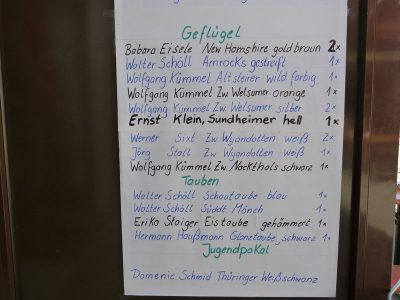 Geflügel
Babara Eisele New Hamshire goldbraun 2x
Walter Schöll Amrocks gestreift 1x
Wolfgang Kümmel Altsteirer wildfarbig 1x
Wolfgang Kümmel Zw. Welsumer orange 1x
Wolfgang Kümmel Zw. Welsumer silber 2x
Ernst Klein, Sundheimer hell 1x
Werner Sixt Zw Wyandotten weiß 2x
Jörg Stoll Zw Wyandotten weiß 1x
Wolfgang Kümmel Zw. Nackthals schwarz 1x
Tauben
Walter Schöll Schautaube blau 1x
Walter Schöll Süddt. Mönch 1x
Erika Staiger Eistaube gehämmert 1x
Hermann Haußmann Glanztaube schwarz 1x
Jugendpokal
Domenic Schmid Thüringer Weißschwanz